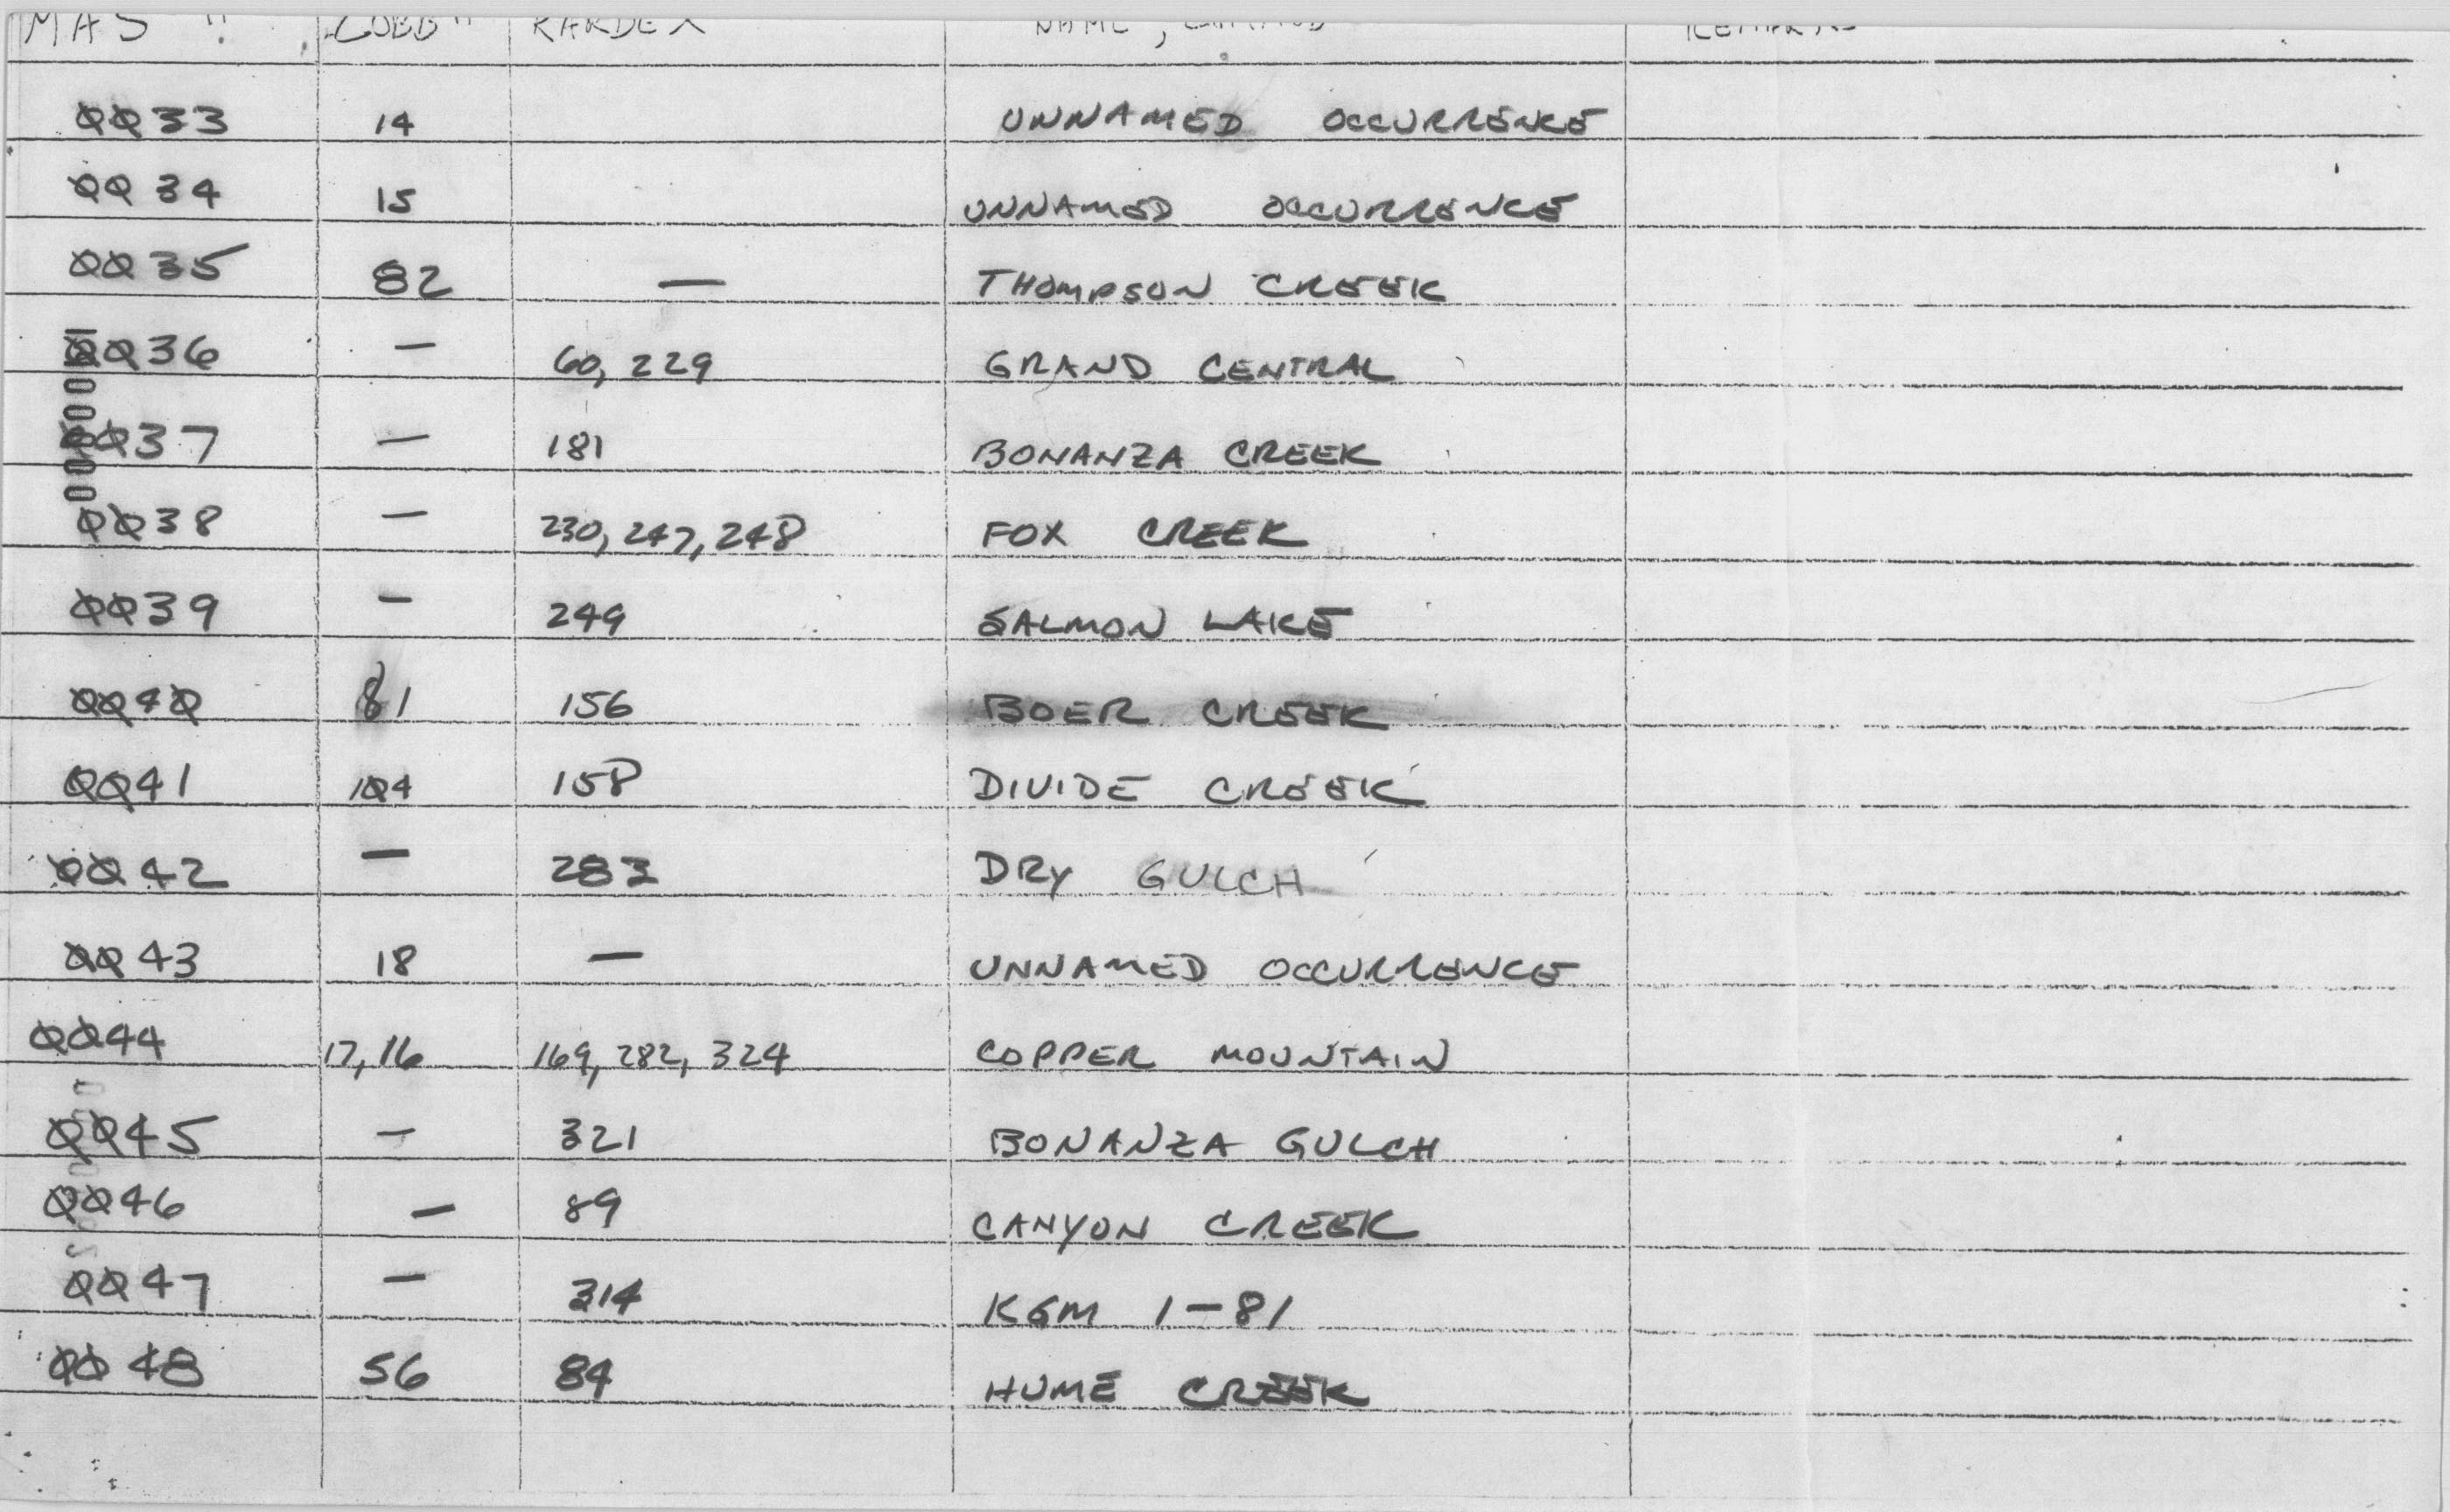 MAS # COBB # KARDEX NAME,
0033 14 UNNAMED OCCURRENCE
0034 15 UNNAMED OCCURRENCE
0035 82 — THOMPSON CREEK
0036 — 60, 229 GRAND CENTRAL
0037 — 181 BONANZA CREEK
0038 — 230, 247, 248 FOX CREEK
0039 — 249 SALMON LAKE
0040 81 156 BOER CREEK
0041 104 158 DIVIDE CREEK
0042 — 283 DRY GULCH
0043 18 — UNNAMED OCCURRENCE
0044 17, 16 169, 282, 324 COPPER MOUNTAIN
0045 — 321 BONANZA GULCH
0046 — 89 CANYON CREEK
0047 — 314 KGM 1-81
0048 56 84 HUME CREEK